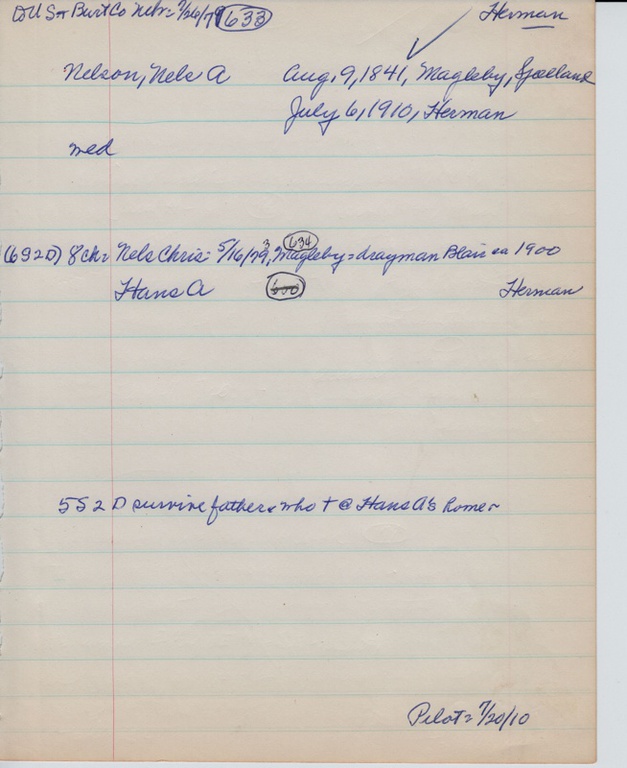 to U S = Burt Co Nebr = 7/26/79 (633) Herman
Nelson, Nels A Aug, 9, 1841, Magleby, Sjaelland
July 6, 1910, Herman
med
(6S2D) 8ch = Nels Chris = 5/16/79, Magleby = drayman Blair ca 1900
3 634
Hans A 600 Herman
5S 2 D survive father = who † @ Hans A's home =
Pilot = 7/20/10